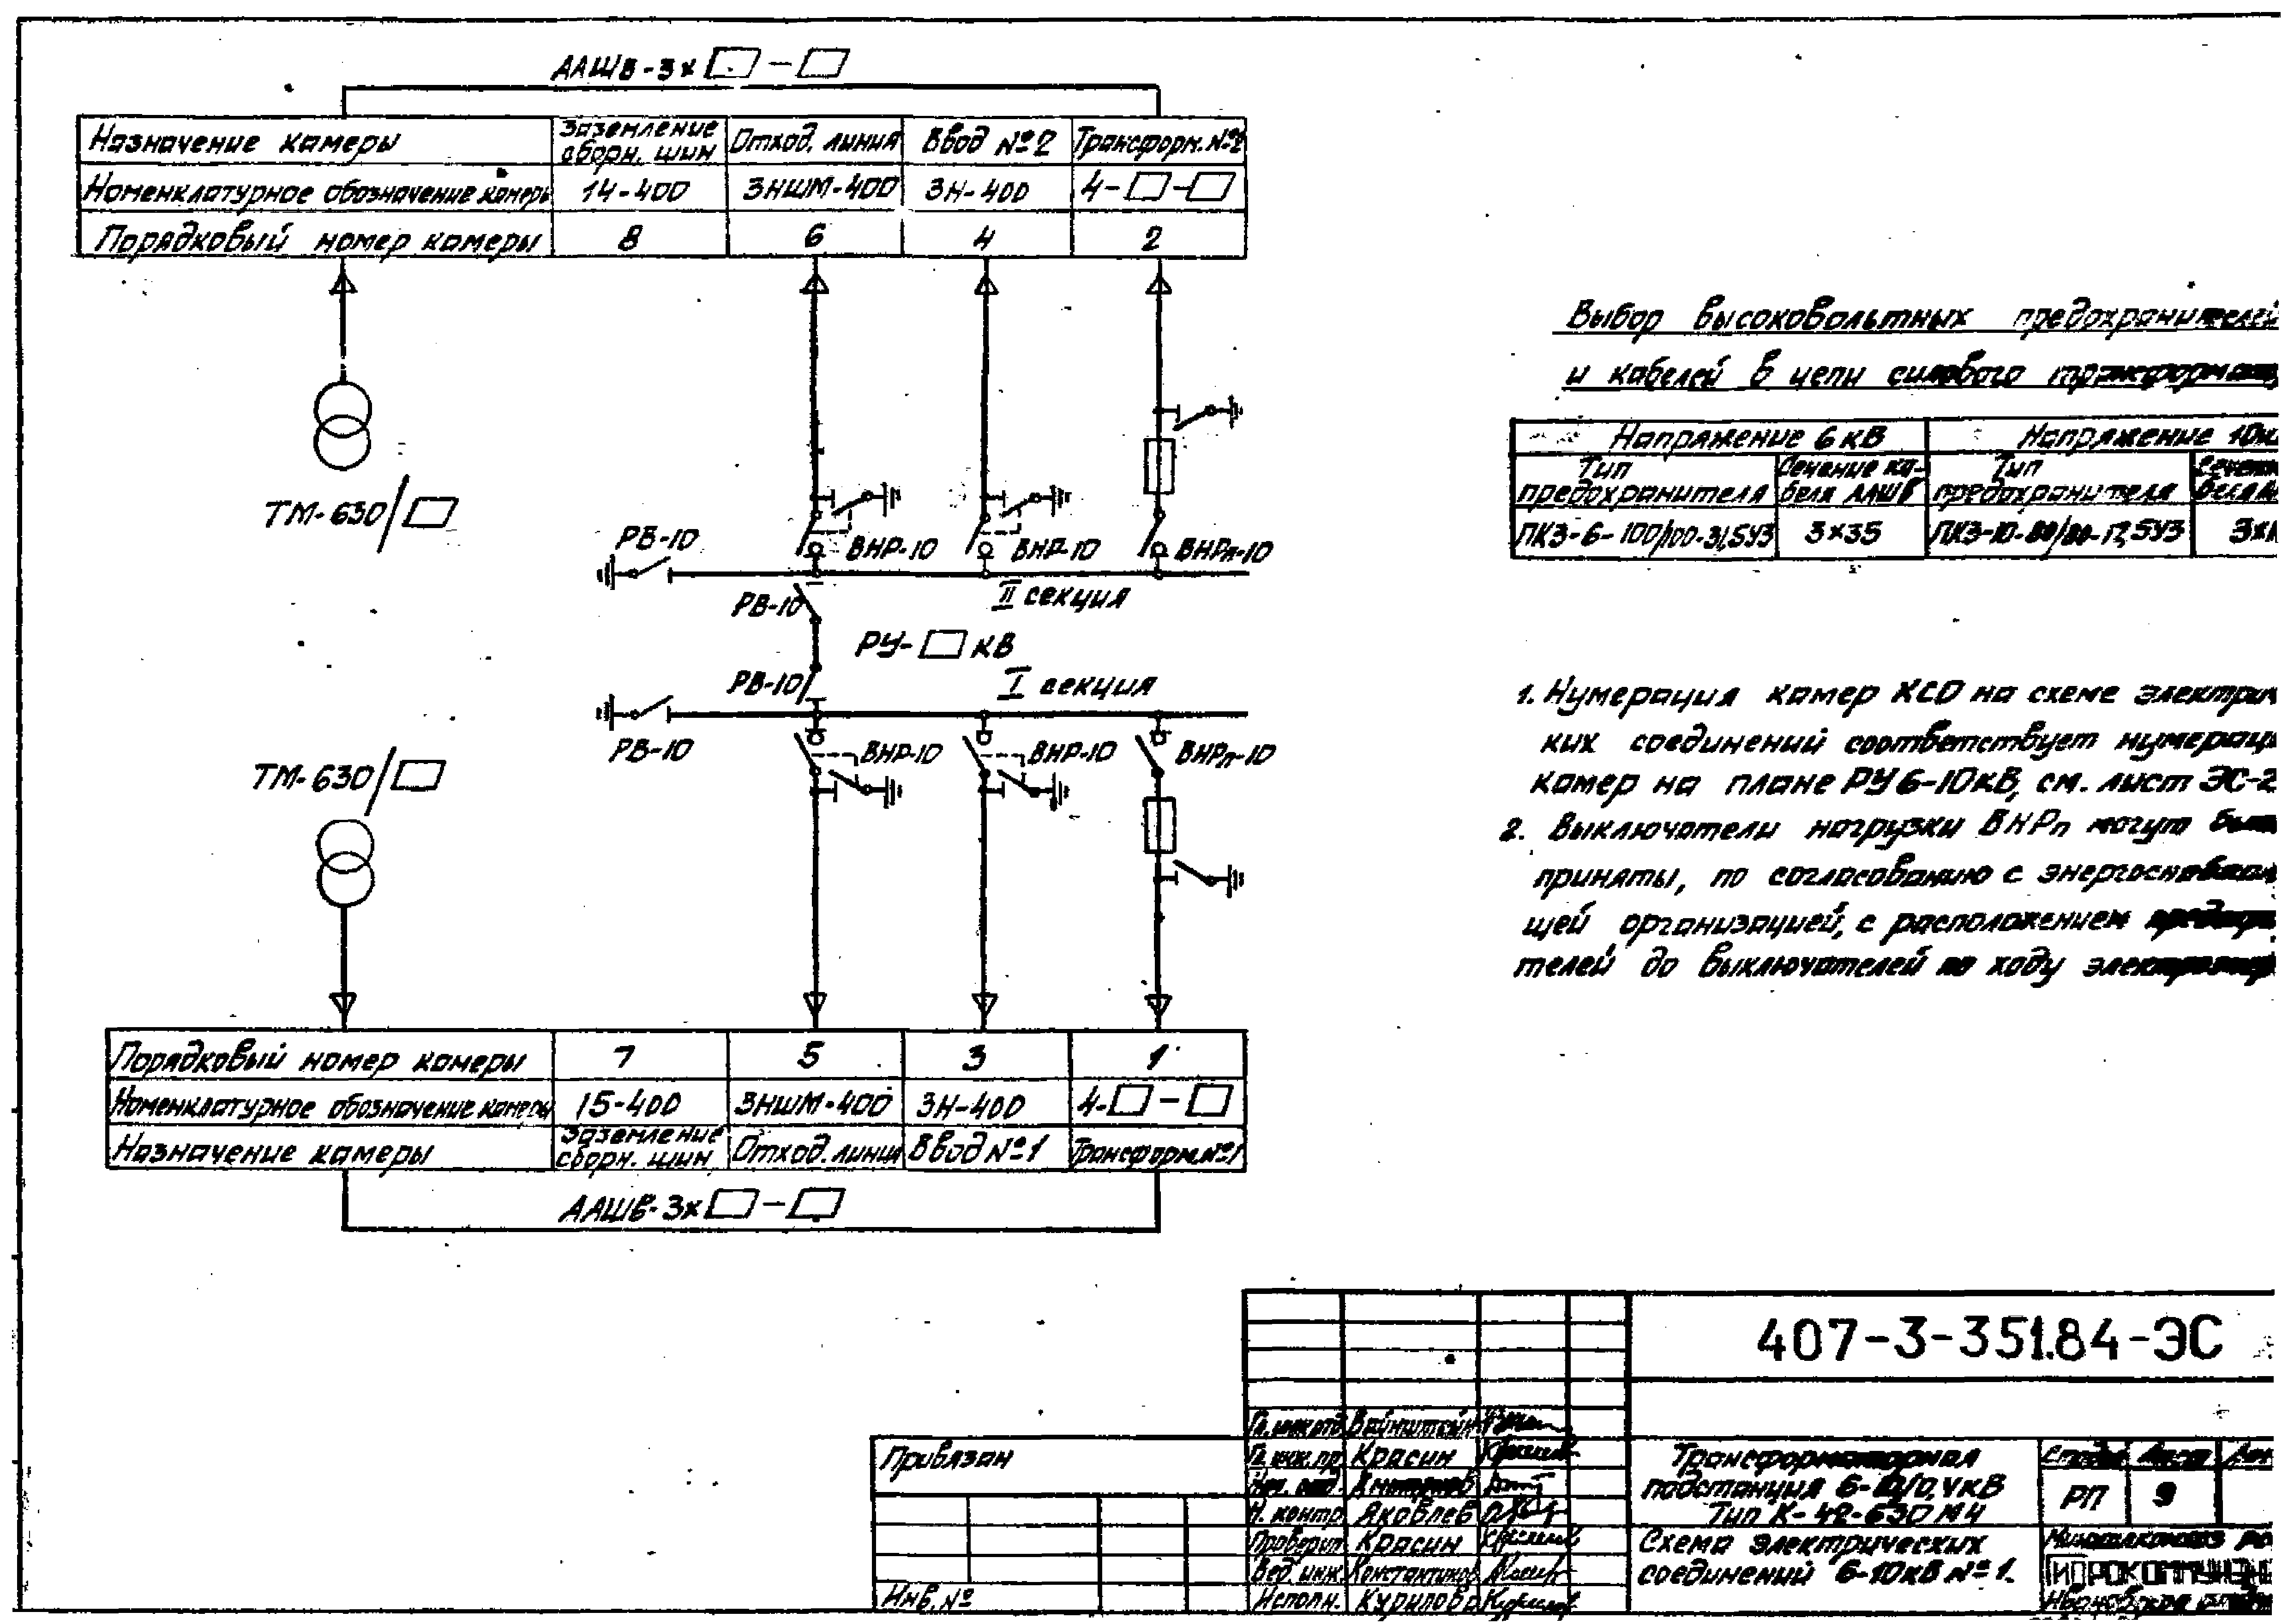 ААШВ-3х□-□
Назначение камеры Заземление сборн. шин Отход. линия Ввод №2 Трансформ. №2
Номенклатурное обозначение камеры 14-400 3НШМ-400 3Н-400 4-□-□
Порядковый номер камеры 8 6 4 2
ТМ-630/□
РВ-10 ВНР-10 ВНР-10 ВНРп-10
II секция
РВ-10
РУ-□ кВ
РВ-10
I секция
РВ-10 ВНР-10 ВНР-10 ВНРп-10
ТМ-630/□
Порядковый номер камеры 7 5 3 1
Номенклатурное обозначение камеры 15-400 3НШМ-400 3Н-400 4-□-□
Назначение камеры Заземление сборн. шин Отход. линия Ввод №1 Трансформ. №1
ААШВ-3х□-□
Выбор высоковольтных предохранителей
и кабелей в цепи силового
Напряжение 6 кВ Напряжение
Тип предохранителя Сечение кабеля ААШВ Тип предохранителя
ПК3-6-100/100-31,5У3 3×35 ПК3-10-80/80-12,5У3
1. Нумерация камер КСО на схеме электрич
ких соединений соответствует нумерац
камер на плане РУ 6-10кВ, см. лист ЭС-2
2. Выключатели нагрузки ВНРп могут
приняты, по согласованию с
щей организацией, с расположением
телей до выключателей по ходу
407-3-351.84-ЭС
Привязан
Инв. №
Вайнштейн
Гл. инж. пр. Красин
Нач. отд.
Н. контр. Яковлев
Проверил Красин
Вед. инж. Константинов
Исполн. Курилова
Трансформаторная
подстанция 6-10/0,4кВ
Тип К-42-630 М4
Схема электрических
соединений 6-10кВ №1.
Лист
РП 9